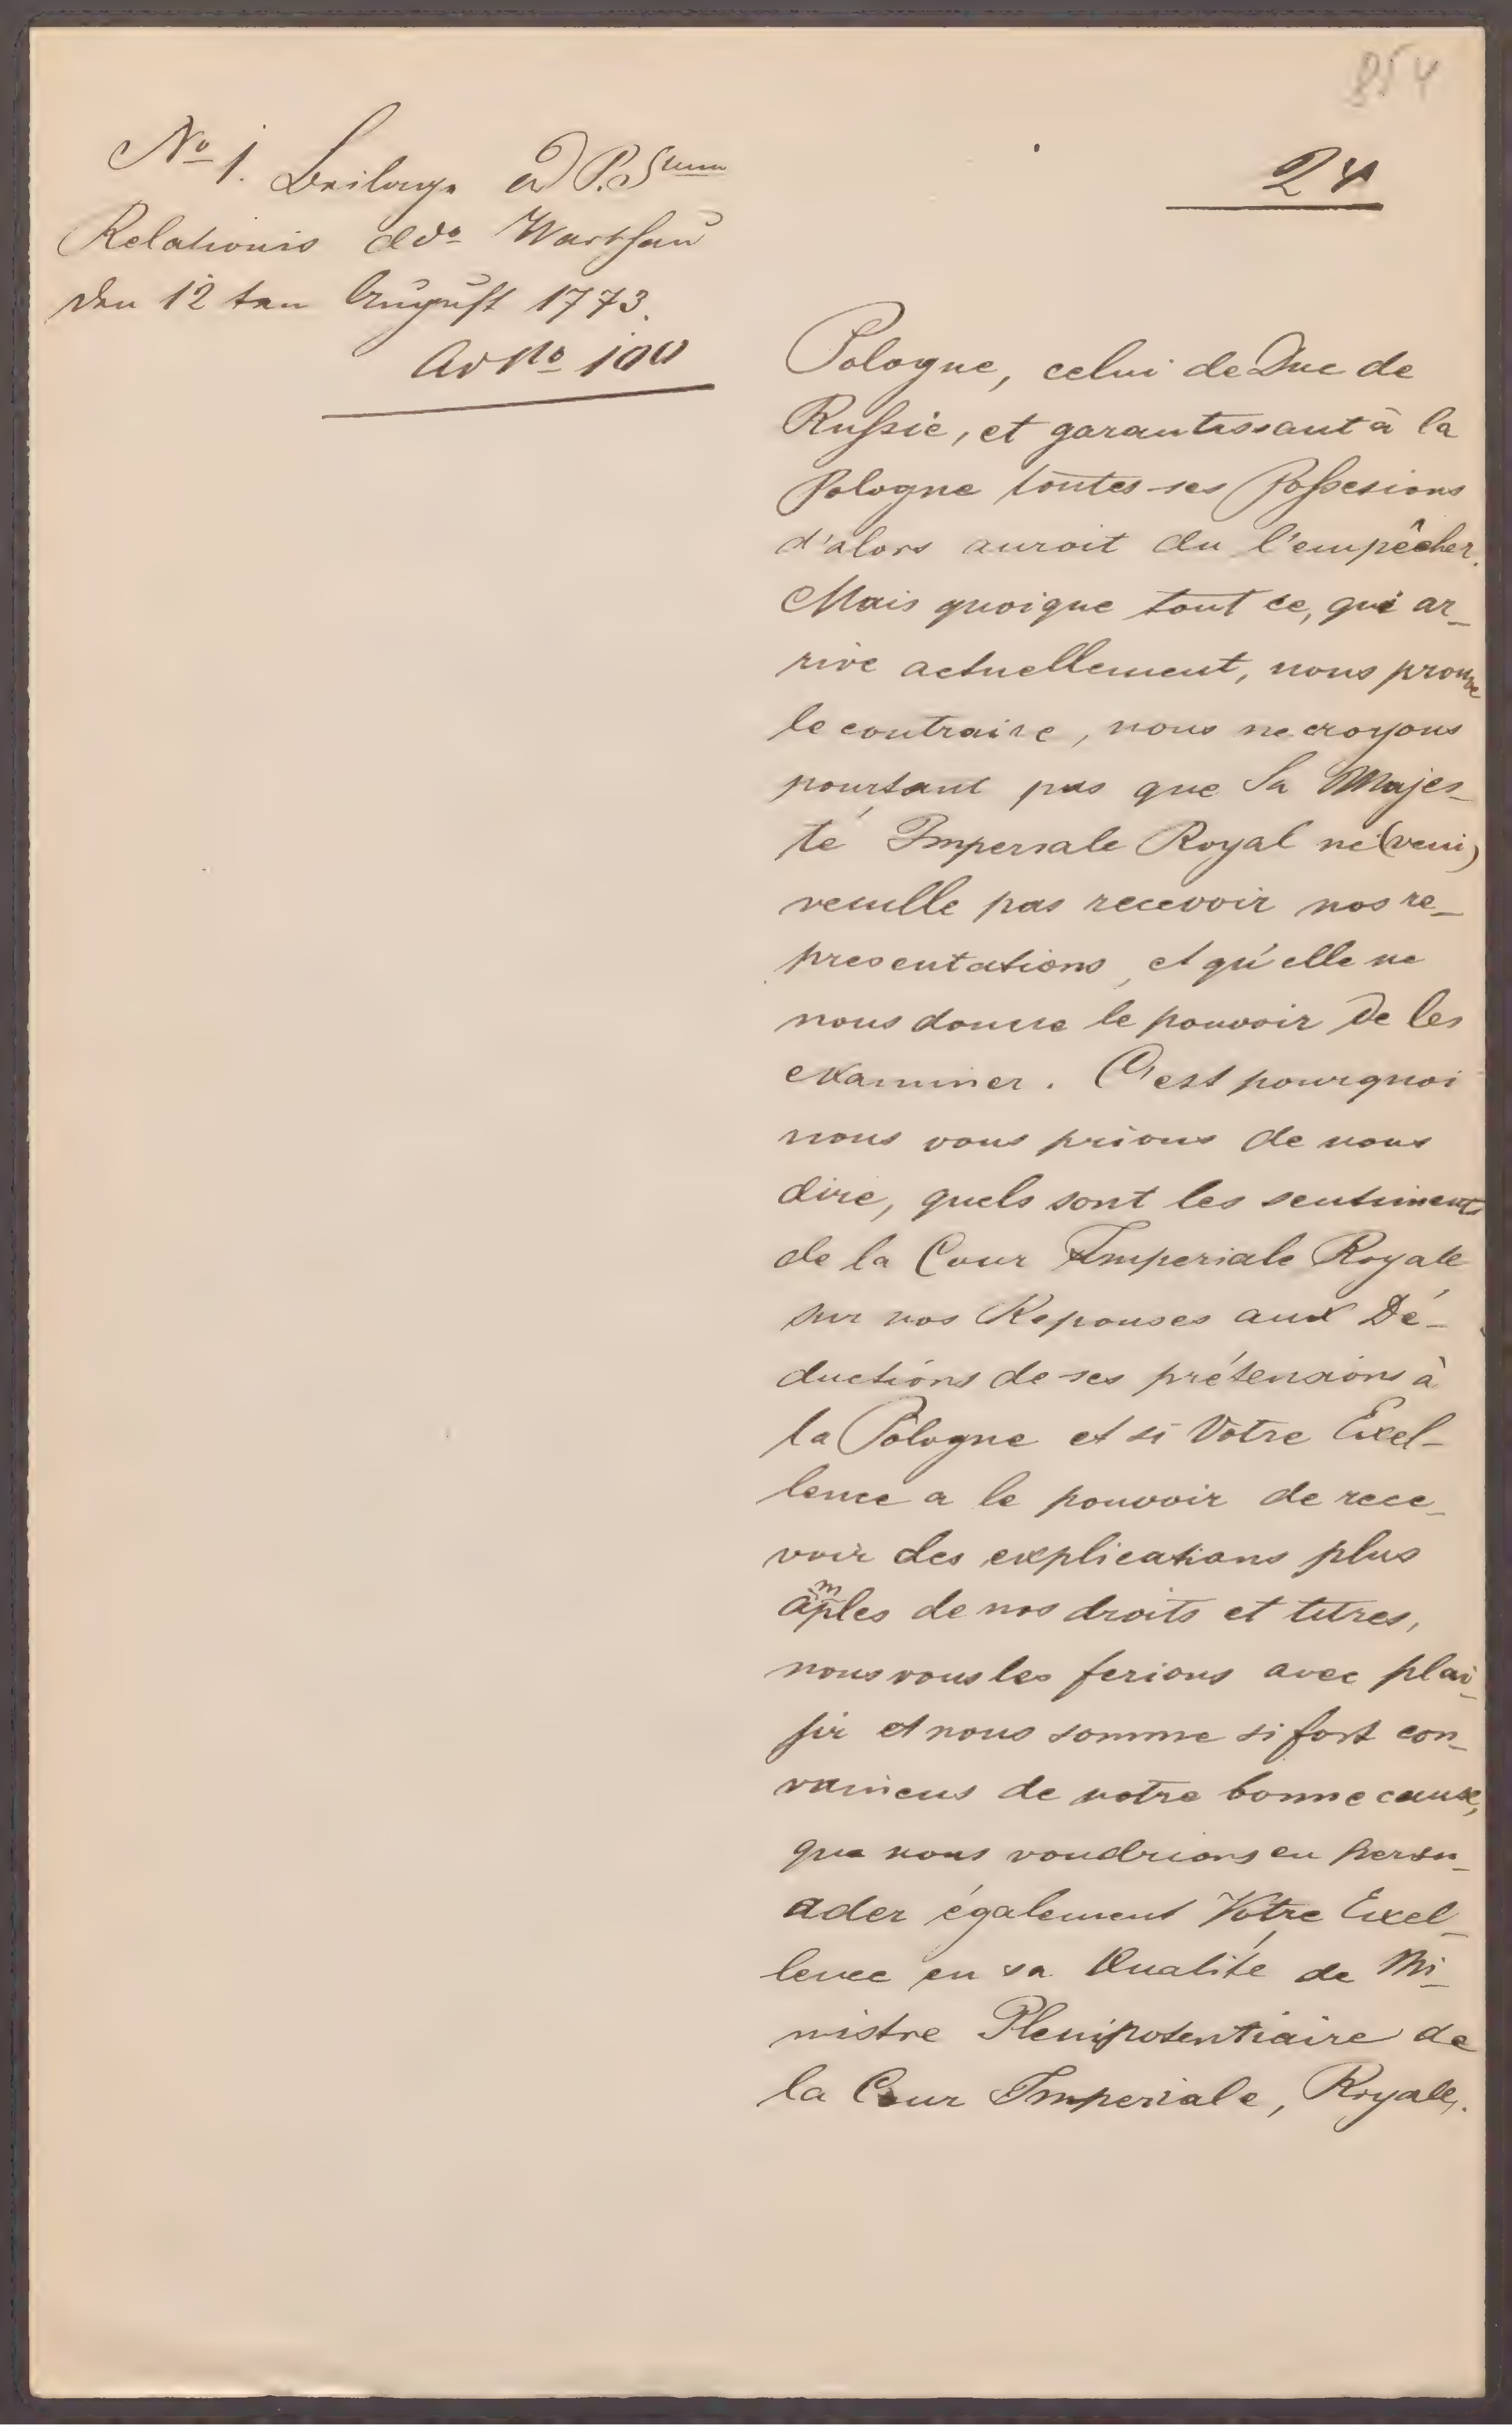 854
24
No 1. Beilage ad P.S.um
Relationis ddo Warschau
den 12 ten August 1773.
ad No
Pologne, celui de Duc de
Russie, et garantissant à la
Pologne toutes ses Possesions
d'alors auroit du l'empêcher.
Mais quoique tout ce, qui ar-
rive actuellement, nous prouve
le contraire, nous ne croyons
pourtant pas que Sa Majes-
té Imperiale Royal ne (veui)
veuille pas recevoir nos re-
presentations, et qu'elle ne
nous donne le pouvoir de les
examiner. C'est pourquoi
nous vous prions de nous
dire, quels sont les sentiments
de la Cour Imperiale Royale
sur nos Reponses aux Dé-
ductions de ses prétensions à
la Pologne et si Votre Exel-
lence a le pouvoir de rece-
voir des explications plus
amples de nos droits et titres,
nous vous les ferions avec plai-
sir et nous somme si fort con-
vaincus de notre bonne cause,
que nous voudrions en persu-
ader également Votre Exel-
lence en sa Qualité de Mi-
nistre Plenipotentiaire de
la Cour Imperiale, Royale.